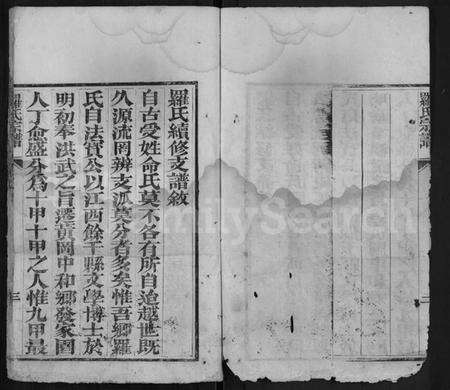 羅氏宗譜
二
羅氏續修支譜敘
自古受姓命氏莫不各有所自迨越世既
久源流罔辨支派莫分者多矣惟吾鄉羅
氏自法實公以江西餘干縣文學博士於
明初奉洪武之旨遷黃岡中和鄉發家國
人丁愈盛分為十甲十甲之人惟九甲最
羅氏宗譜
三
FamilySearch